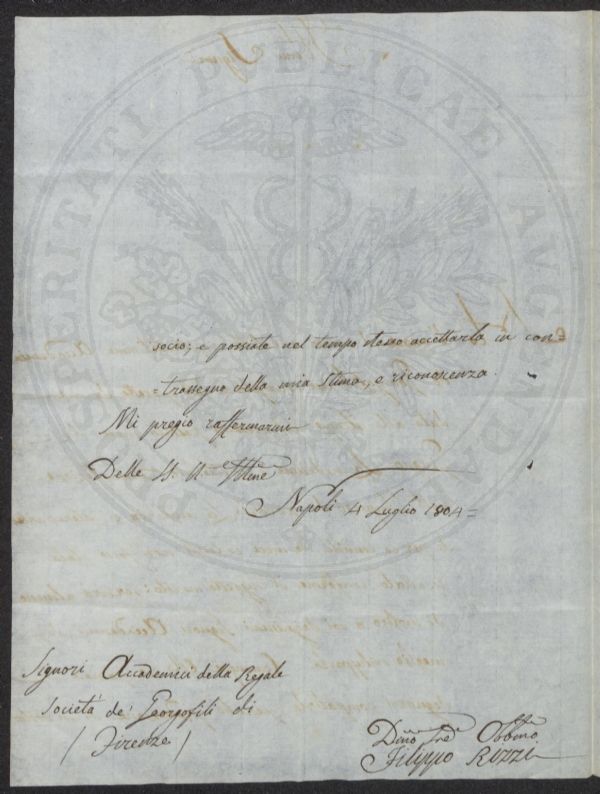 PROSPERITATI PUBLICAE AUGENDAE
socio; e possiate nel tempo stesso accettarla in con=
=trassegno della mia stima, e riconoscenza.
Mi pregio raffermarmi
Delle
Napoli 4 Luglio 1804=
Signori Accademici della Regale
Società de' Georgofili di
/ Firenze /
Obbmo
Filippo Rizzi